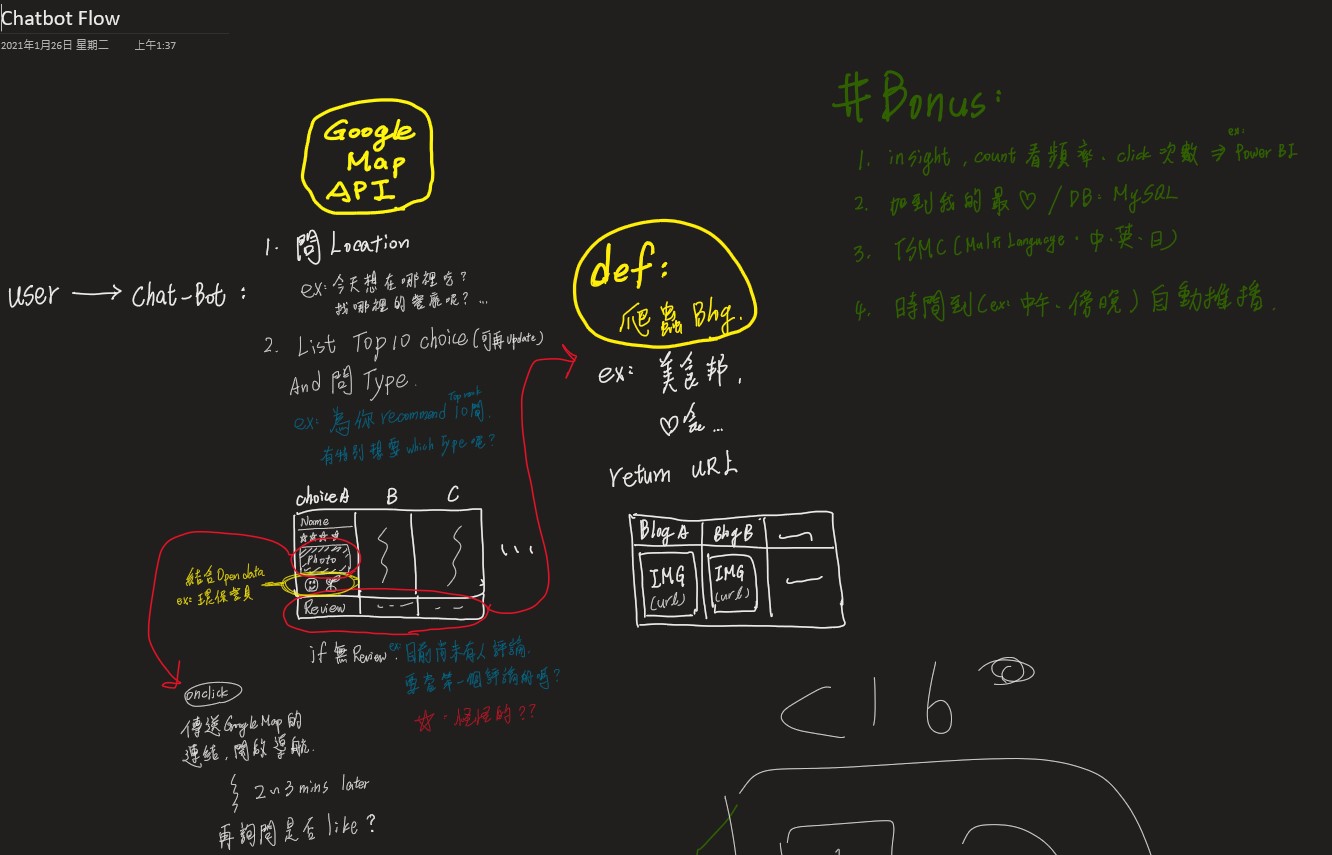 Chatbot Flow
2021年1月26日 星期二 上午1:37
Google
Map
API
user → Chat-Bot :
1. 問 Location
ex: 今天想在哪裡吃?
找哪裡的餐廳呢? ...
2. List Top 10 choice (可再 update)
And 問 Type.
Top rank
ex: 為你 recommend 10間.
有特別想要 which type 呢?
choice A B C
Name
☆☆☆☆
Photo
Review
...
結合 Open data
ex: 環保餐具
if 無 Review.
ex: 目前尚未有人評論.
要當第一個評論的嗎?
☆ · 怪怪的??
onclick
傳送 Google Map 的
連結, 開啟導航.
2~3 mins later
再詢問是否 like?
def:
爬蟲 Blog.
ex: 美食邦,
♡食...
return URL
Blog A Blog B
IMG IMG
(url) (url)
#Bonus:
ex:
1. insight, count 看頻率、click 次數 ⇒ Power BI
2. 加到我的最♡ / DB: MySQL
3. TSMC (Multi Language · 中、英、日)
4. 時間到 (ex: 中午、傍晚) 自動推播.
<16